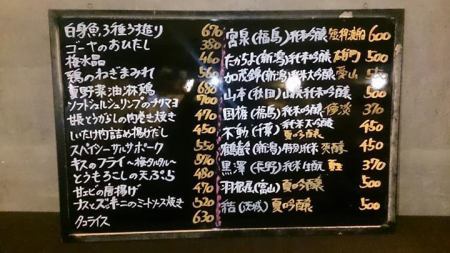 白身魚3種もずっり 670
ゴーヤのおひたし 380
梅水晶 460
鶏のねぎまみれ 560
夏野菜油淋鶏 680
ソフトシェルシュリンプのチリマヨ 700
甘長とうがらしの肉巻き焼き 470
いたけ肉詰め揚げだし
スペイシーサルサポーク 550
キスのフライ〜梅タルタル〜
とうもろこしの天ぷら 480
甘エビの唐揚げ 470
ナスとズッキーニのミートソース焼き 520
タコライス 630
宮泉(福島)純米吟醸 600
たかちよ(新潟)純米大吟醸 雄町 500
加茂錦(新潟)純米大吟醸 愛山 550
山本(秋田) 純米吟醸 500
国権(福島)純米吟醸 370
不動(千葉)純米大吟醸 夏吟醸 450
鶴齢(新潟)特別純米 爽醇 450
黒澤(長野)純米生酛 夏生 370
羽根屋(富山)夏吟醸 500
結(茨城)夏吟醸 500